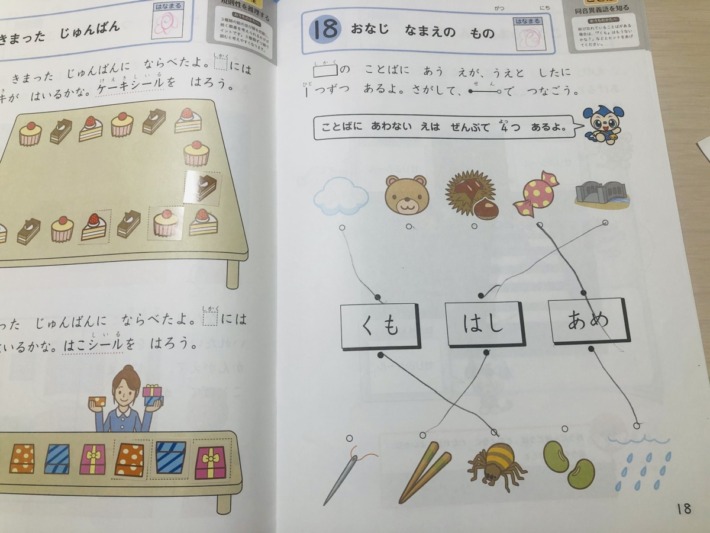 きまった じゅんばん
はなまる
きまった じゅんばんに ならべたよ。には
が はいるかな。ケーキシールを はろう。
った じゅんばんに ならべたよ。には
いるかな。はこシールを はろう。
18 おなじ なまえの もの
はなまる
がつ にち
同音異義語を知る
の ことばに あう えが、うえと したに
1つずつ あるよ。さがして、で つなごう。
ことばに あわない えは ぜんぶで 4つ あるよ。
くも
はし
あめ
18